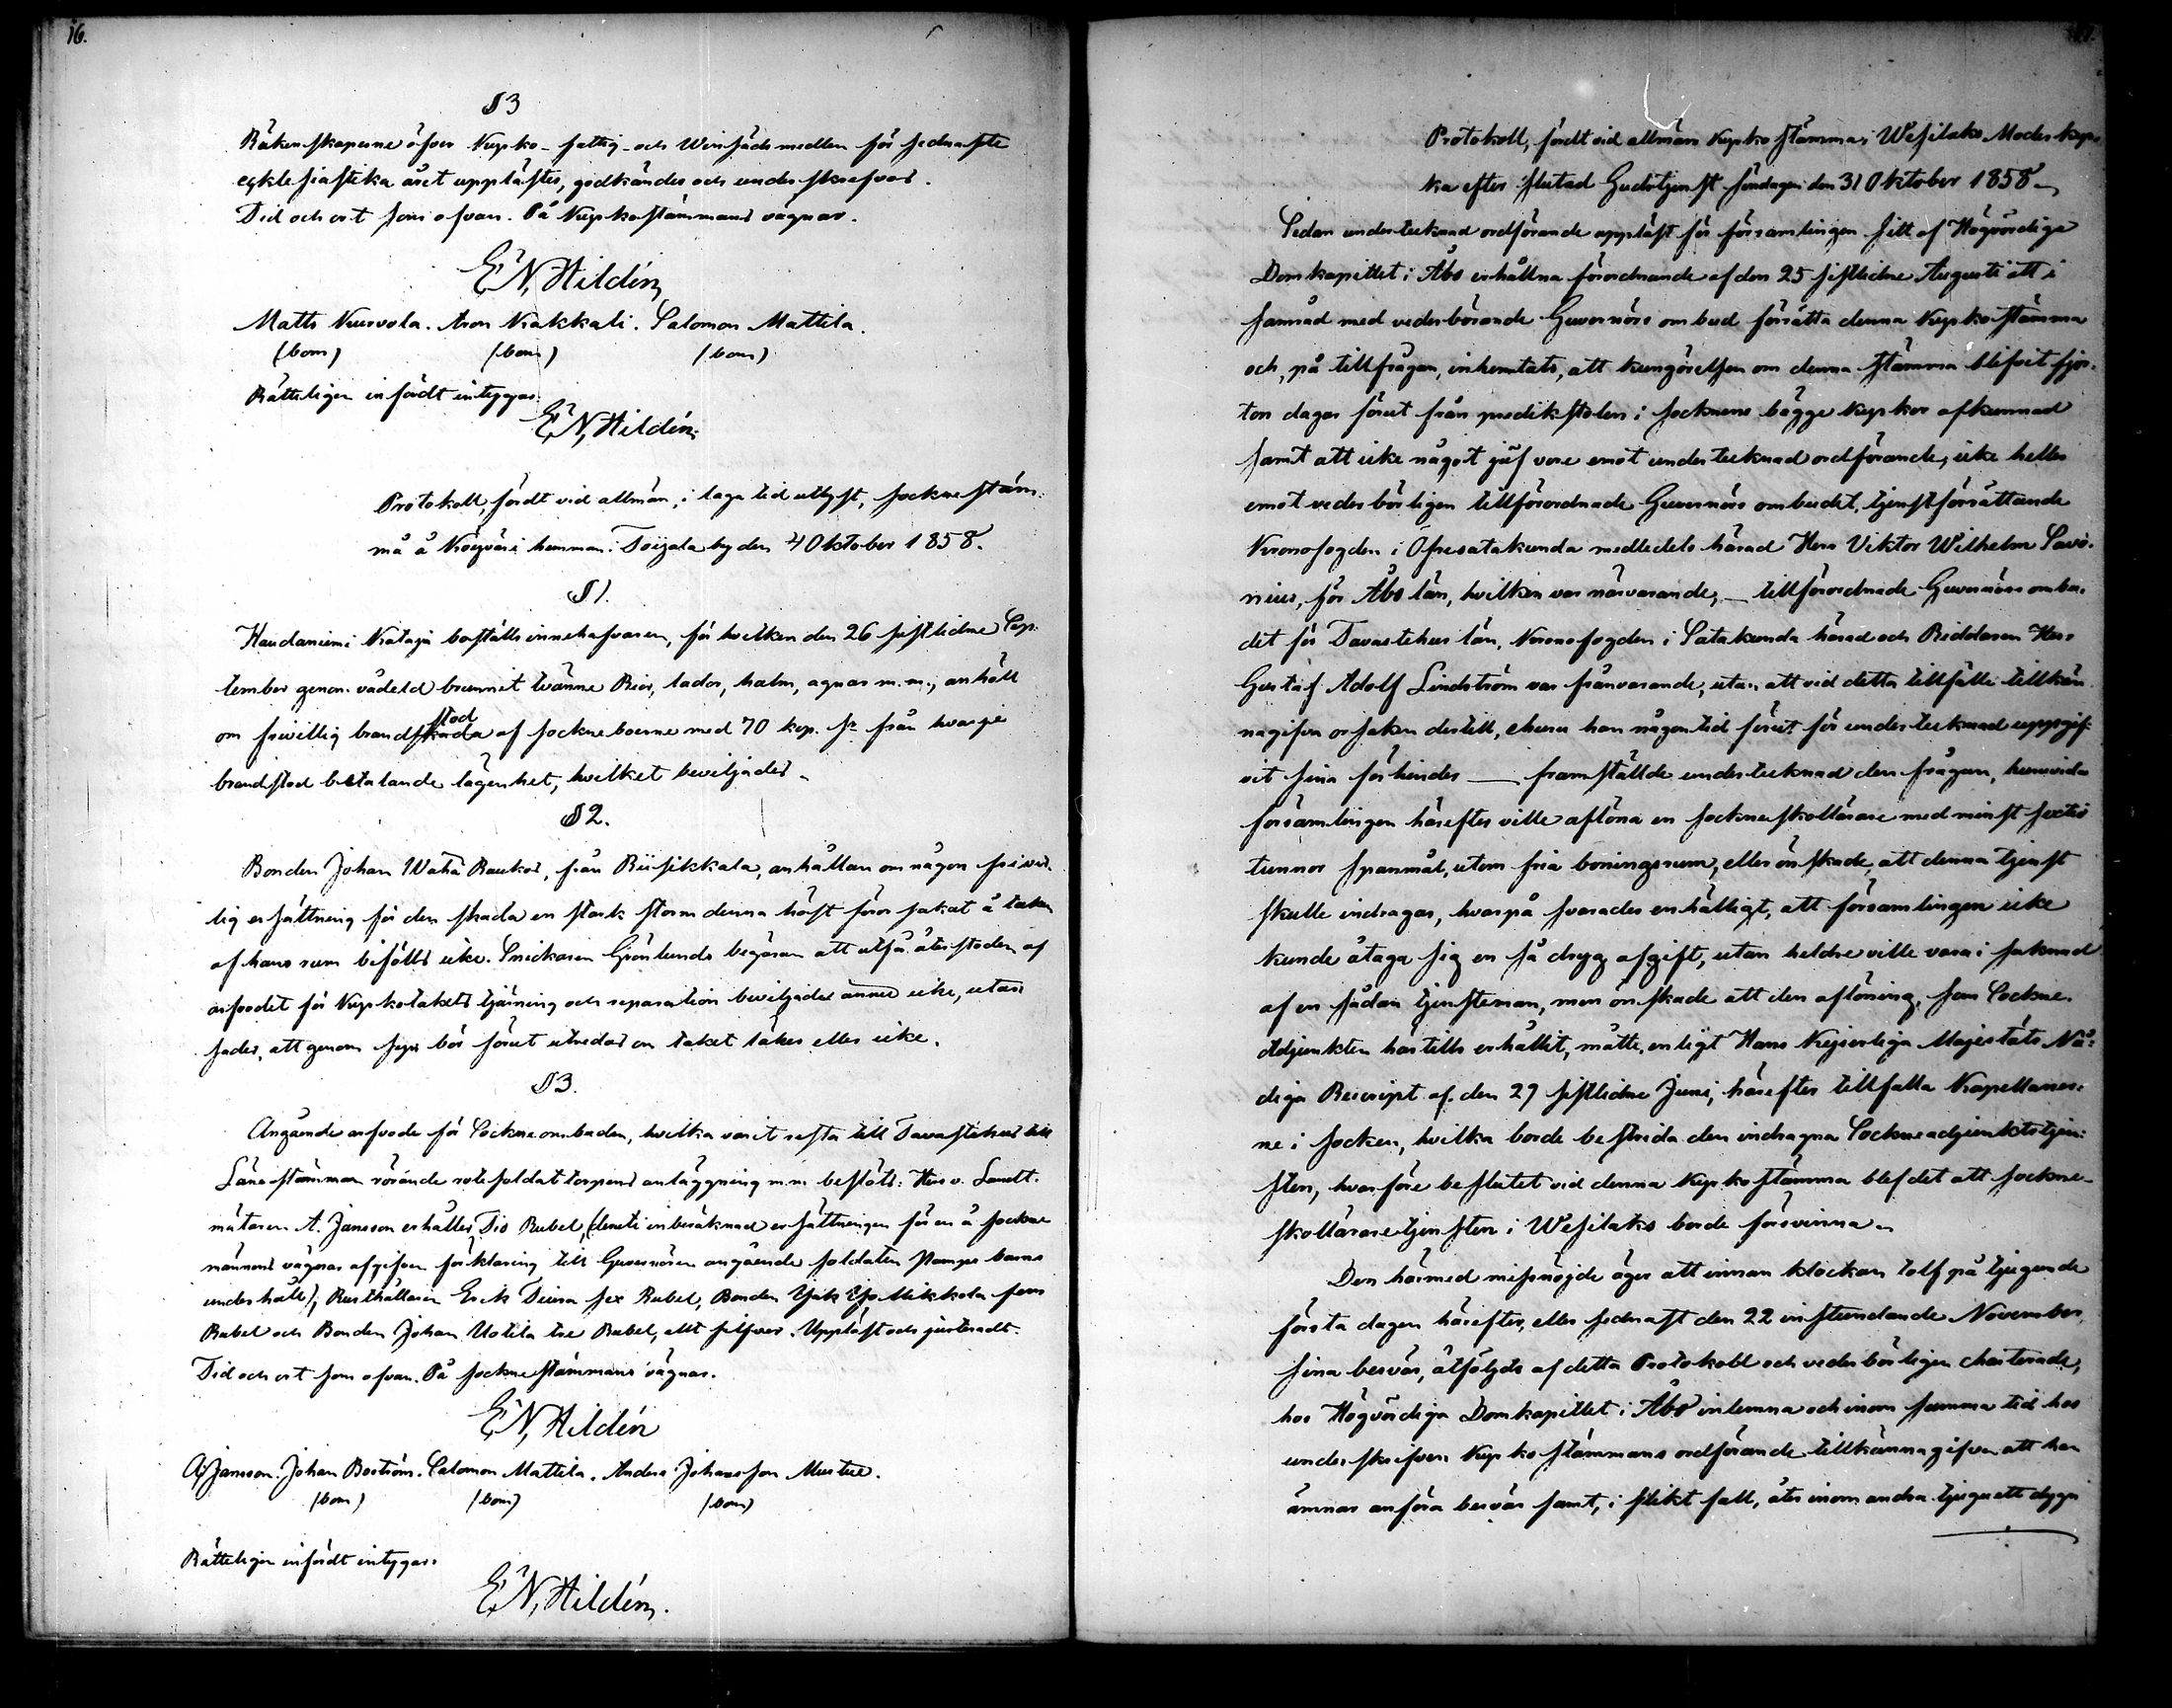 16.
§ 3
Räkenskaperne öfver Kyrko- fattig- och Winsädsmedlen för sednaste
ecklesiastika året upplästes, godkändes och underskrefvos.
Tid och ort som ofvan. På Kyrkostämmans vägnar.
E. N. Hildén,
Matts Kurvola. Aron Krakkali. Salomon Mattila.
(bom) (bom) (bom)
Rätteligen infördt intygar.
E. N. Hildén.
Protokoll, fördt vid allmän, i laga tid utlyst, sockne stäm-
ma å hemman i Toizala by den 4 Oktober 1858.
§ 1.
Haudaniemi Kataja boställs innehafvaren, för hvilken den 26 sistlidne Sep-
tember genom vådeld brunnit tvänne Rior, lador, halm, agnar m. m., anhöll
om frivillig brandstod af socknеboerne med 70 kop. sr från hvarje
brandstod betalande lägenhet, hvilket beviljades.
§ 2.
Bonden Johan Wähä Raukos, från Riisikkala, anhållan om någon frivil-
lig ersättning för den skada en stark storm denna höst förorsakat å taken
af hans rum bifölls icke. Snickaren Grönlunds begäran att utfå återstoden af
arfvodet för Kyrkotakets tjärning och reparation beviljades ännu icke, utan
sades, att genom syn bör förut utredas om taket läker eller icke.
§ 3.
Angående arfvode för Sockneombuden, hvilka varit resta till Tavastehus till
Länestämman rörande rotesoldattorpens anläggning m.m. beslöts: Herr v. Landt-
mätaren A. Jansson erhåller Tio Rubel, (deruti inberäknad ersättningen för en å sockne
männens vägnar afgifven förklaring till Guvernören angående soldaten Pamps barns
underhåll); Rusthållaren Erik Tiura sex Rubel, Bonden Isak Yjo Mikkola fem
Rubel och Bonden Johan Uotila tre Rubel, allt silfver. Uppläst och justeradt.
Tid och ort som ofvan. På sockne stämmans vägnar.
E. N. Hildén
A. Jansson. Johan Boström. Salomon Mattila. Anders Johansson Mustue.
(bom) (bom) (bom)
Rätteligen infördt intygar:
E. N. Hildén.
17.
Protokoll, fördt vid allmän Kyrkostämma i Wesilaks Moderkyr-
ka efter slutad Gudstjenst söndagen den 31 Oktober 1858.
Sedan undertecknad ordförande uppläst för församlingen sitt af Högvördiga
Domkapitlet i Åbo erhållna förordnande af den 25 sistlidne Augusti att i
samråd med vederbörande Guvernörs ombud förrätta denna Kyrkostämma
och, på tillfrågan, inhemtats, att kungörelsen om denna stämma blifvit fjor-
ton dagar förut från predikstolen i socknens bägge kyrkor afkunnad
samt att icke något jäf vore emot undertecknad ordförande, icke heller
emot vederbörligen tillförordnade Guvernörs ombudet, tjenstförrättande
Kronofogden i Öfresatakunda medledels härad Herr Viktor Wilhelm Savo-
nius, för Åbo län, hvilken var närvarande, — tillförordnade Guvernörs ombu-
det för Tavastehus län, Kronofogden i Satakunda härad och Riddaren Herr
Gustaf Adolf Lindström var frånvarande, utan att vid detta tillfälle tillkän-
nagifva orsaken dertill, ehuru han någon tid förut för undertecknad uppgif-
vit sina förhinder — framställde undertecknad den frågan, huruvida
församlingen härefter ville aflöna en sockneskollärare med minst sextio
tunnor spanmål, utom fria boningsrum, eller önskade, att denna tjenst
skulle indragas, hvarpå svarades enhälligt, att församlingen icke
kunde åtaga sig en så dryg afgift, utan heldre ville vara i saknad
af en sådan tjensteman, men önskade att den aflöning, som Sockne-
Adjunkten härtills erhållit, måtte, enligt Hans Kejserliga Majestäts Nå-
diga Rescript af den 27 sistlidne Juni, härefter tillfalla Kapellaner-
ne i socken, hvilka borde bestrida den indragna Sockneadjunktstjen-
sten, hvarföre beslutet vid denna Kyrkostämma blef det att sockne-
skollärare tjensten i Wesilaks borde försvinna.
Den härmed missnöjde äger att innan klockan tolf på tjugonde
första dagen härefter, eller sednast den 22 instundande November,
sina besvär, åtföljde af detta Protokoll och vederbörligen charterade,
hos Högvördiga Domkapitlet i Åbo inlemna och inom samma tid hos
underskrifven Kyrkostämmans ordförande tillkännagifva att han
ämnar anföra besvär samt, i slikt fall, åter inom andra tjuguett dygn